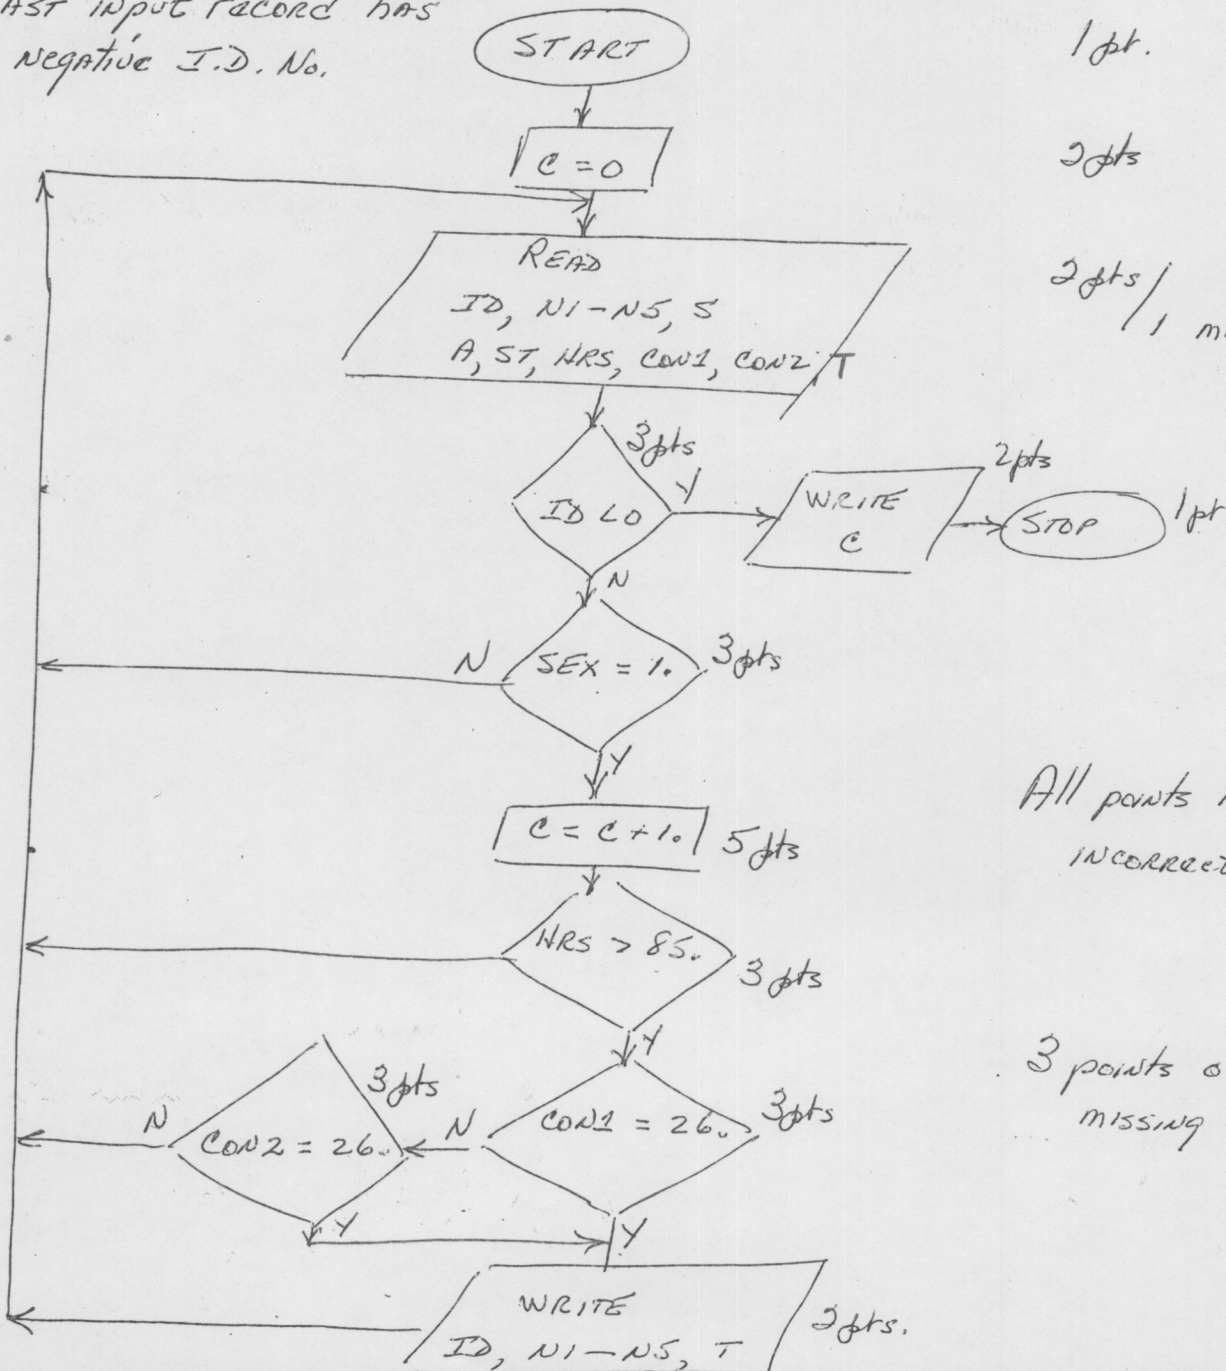 AST input record has
negative I.D. No.
START
1 pt.
C = 0
2 pts
READ
ID, N1-N5, S
A, ST, HRS, CON1, CON2, T
2 pts / 1 m
3 pts
ID < 0
Y
WRITE
C
2 pts
STOP
1 pt
N
N
SEX = 1.
3 pts
Y
C = C + 1.
5 pts
All points
incorrect
HRS > 85.
3 pts
Y
3 pts
N
CON2 = 26.
N
CON1 = 26.
3 pts
3 points o
missing
Y
Y
WRITE
ID, N1-N5, T
2 pts.